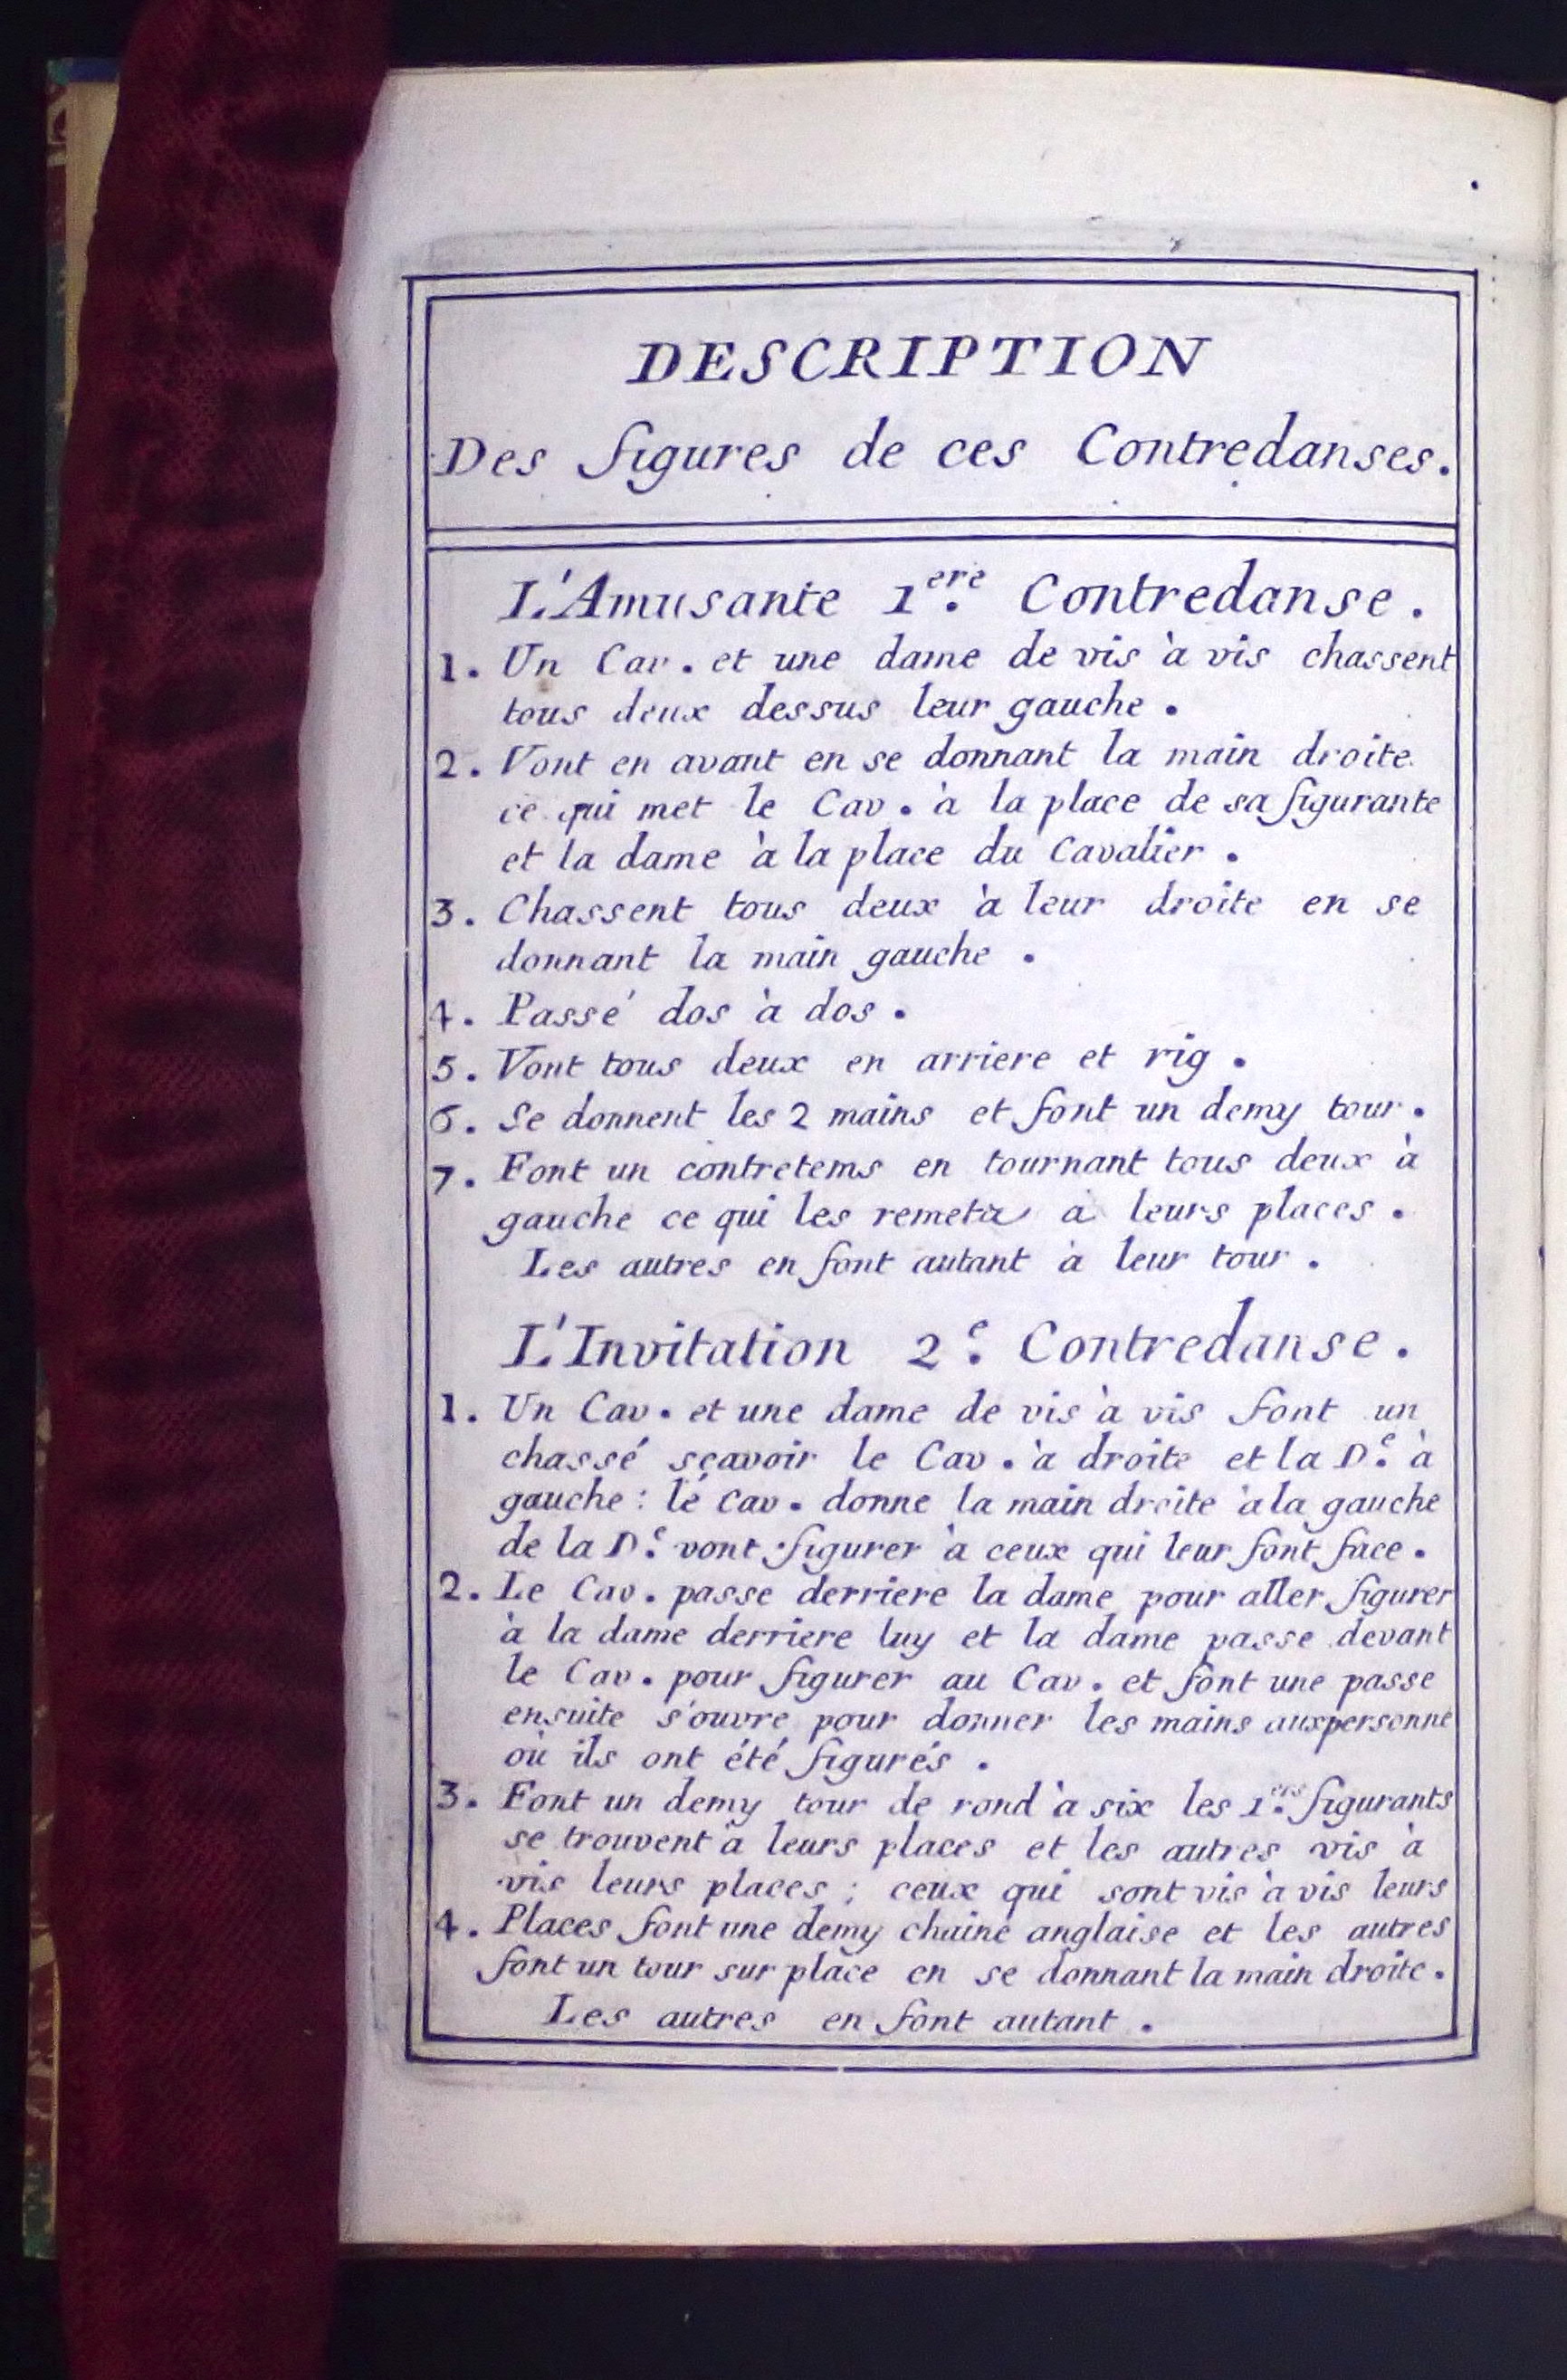 DESCRIPTION
Des figures de ces Contredanses.
L'Amusante 1.ere Contredanse.
1. Un Cav. et une dame de vis à vis chassent
tous deux dessus leur gauche.
2. Vont en avant en se donnant la main droite
ce qui met le Cav. à la place de sa figurante
et la dame à la place du Cavalier.
3. Chassent tous deux à leur droite en se
donnant la main gauche.
4. Passé dos à dos.
5. Vont tous deux en arriere et rig.
6. Se donnent les 2 mains et font un demy tour.
7. Font un contretems en tournant tous deux à
gauche ce qui les remeta à leurs places.
Les autres en font autant à leur tour.
L'Invitation 2.e Contredanse.
1. Un Cav. et une dame de vis à vis font un
chassé sçavoir le Cav. à droite et la D.e à
gauche: le Cav. donne la main droite à la gauche
de la D.e vont figurer à ceux qui leur font face.
2. Le Cav. passe derriere la dame pour aller figurer
à la dame derriere luy et la dame passe devant
le Cav. pour figurer au Cav. et font une passe
ensuite s'ouvre pour donner les mains aux personne
où ils ont été figurés.
3. Font un demy tour de rond à six les 1.ers figurants
se trouvent à leurs places et les autres vis à
vis leurs places; ceux qui sont vis à vis leurs
4. Places font une demy chaine anglaise et les autres
font un tour sur place en se donnant la main droite.
Les autres en font autant.